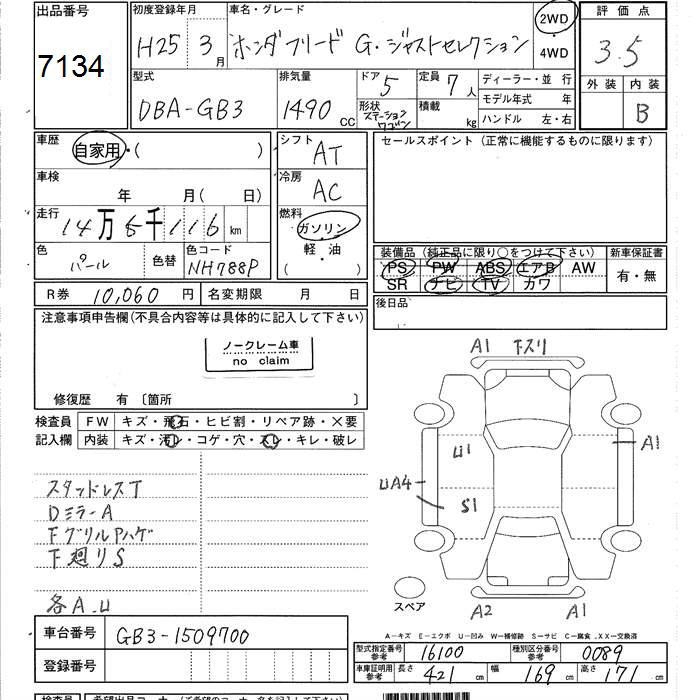 出品番号
7134
初度登録年月
H25 3月
車名・グレード
ホンダフリード G・ジャストセレクション
2WD
・
4WD
評価点
3.5
外装 内装
B
型式
DBA-GB3
排気量
1490 CC
ドア
5
形状
ステーションワゴン
定員
7人
積載
kg
ディーラー・並 行
モデル年式 年
ハンドル 左・右
車歴
自家用・( )
シフト
AT
車検
年 月( 日)
冷房
AC
走行
14万6千116 km
燃料
ガソリン
・
軽・油
( )
色
パール
色替
色コード
NH788P
R券 10,060 円
名変期限 月 日
セールスポイント (正常に機能するものに限ります)
装備品 (純正品に限り○をつけて下さい)
PS PW ABS エアB AW
SR ナビ TV カワ
新車保証書
有・無
後日品
注意事項申告欄(不具合内容等は具体的に記入して下さい)
ノークレーム車
no claim
修復歴 有 〔箇所 〕
検査員
記入欄
FW キズ・飛石・ヒビ割・リペア跡・×要
内装 キズ・汚レ・コゲ・穴・スレ・キレ・破レ
スタッドレスT
DミラーA
FグリルPハゲ
下廻りS
各A.U
A1 下スリ
U1
A1
UA4
S1
スペア
A2 A1
A―キズ E―エクボ U―凹み W―補修跡 S―サビ C―腐食 .XX―交換済
車台番号 GB3-1509700
登録番号
型式指定番号
参考
16100
種別区分番号
参考
0089
車庫証明用
参考
長さ 421 cm 幅 169 cm 高さ 171 cm
検査員 希望出品コーナー(ご希望のコーナー名を記入